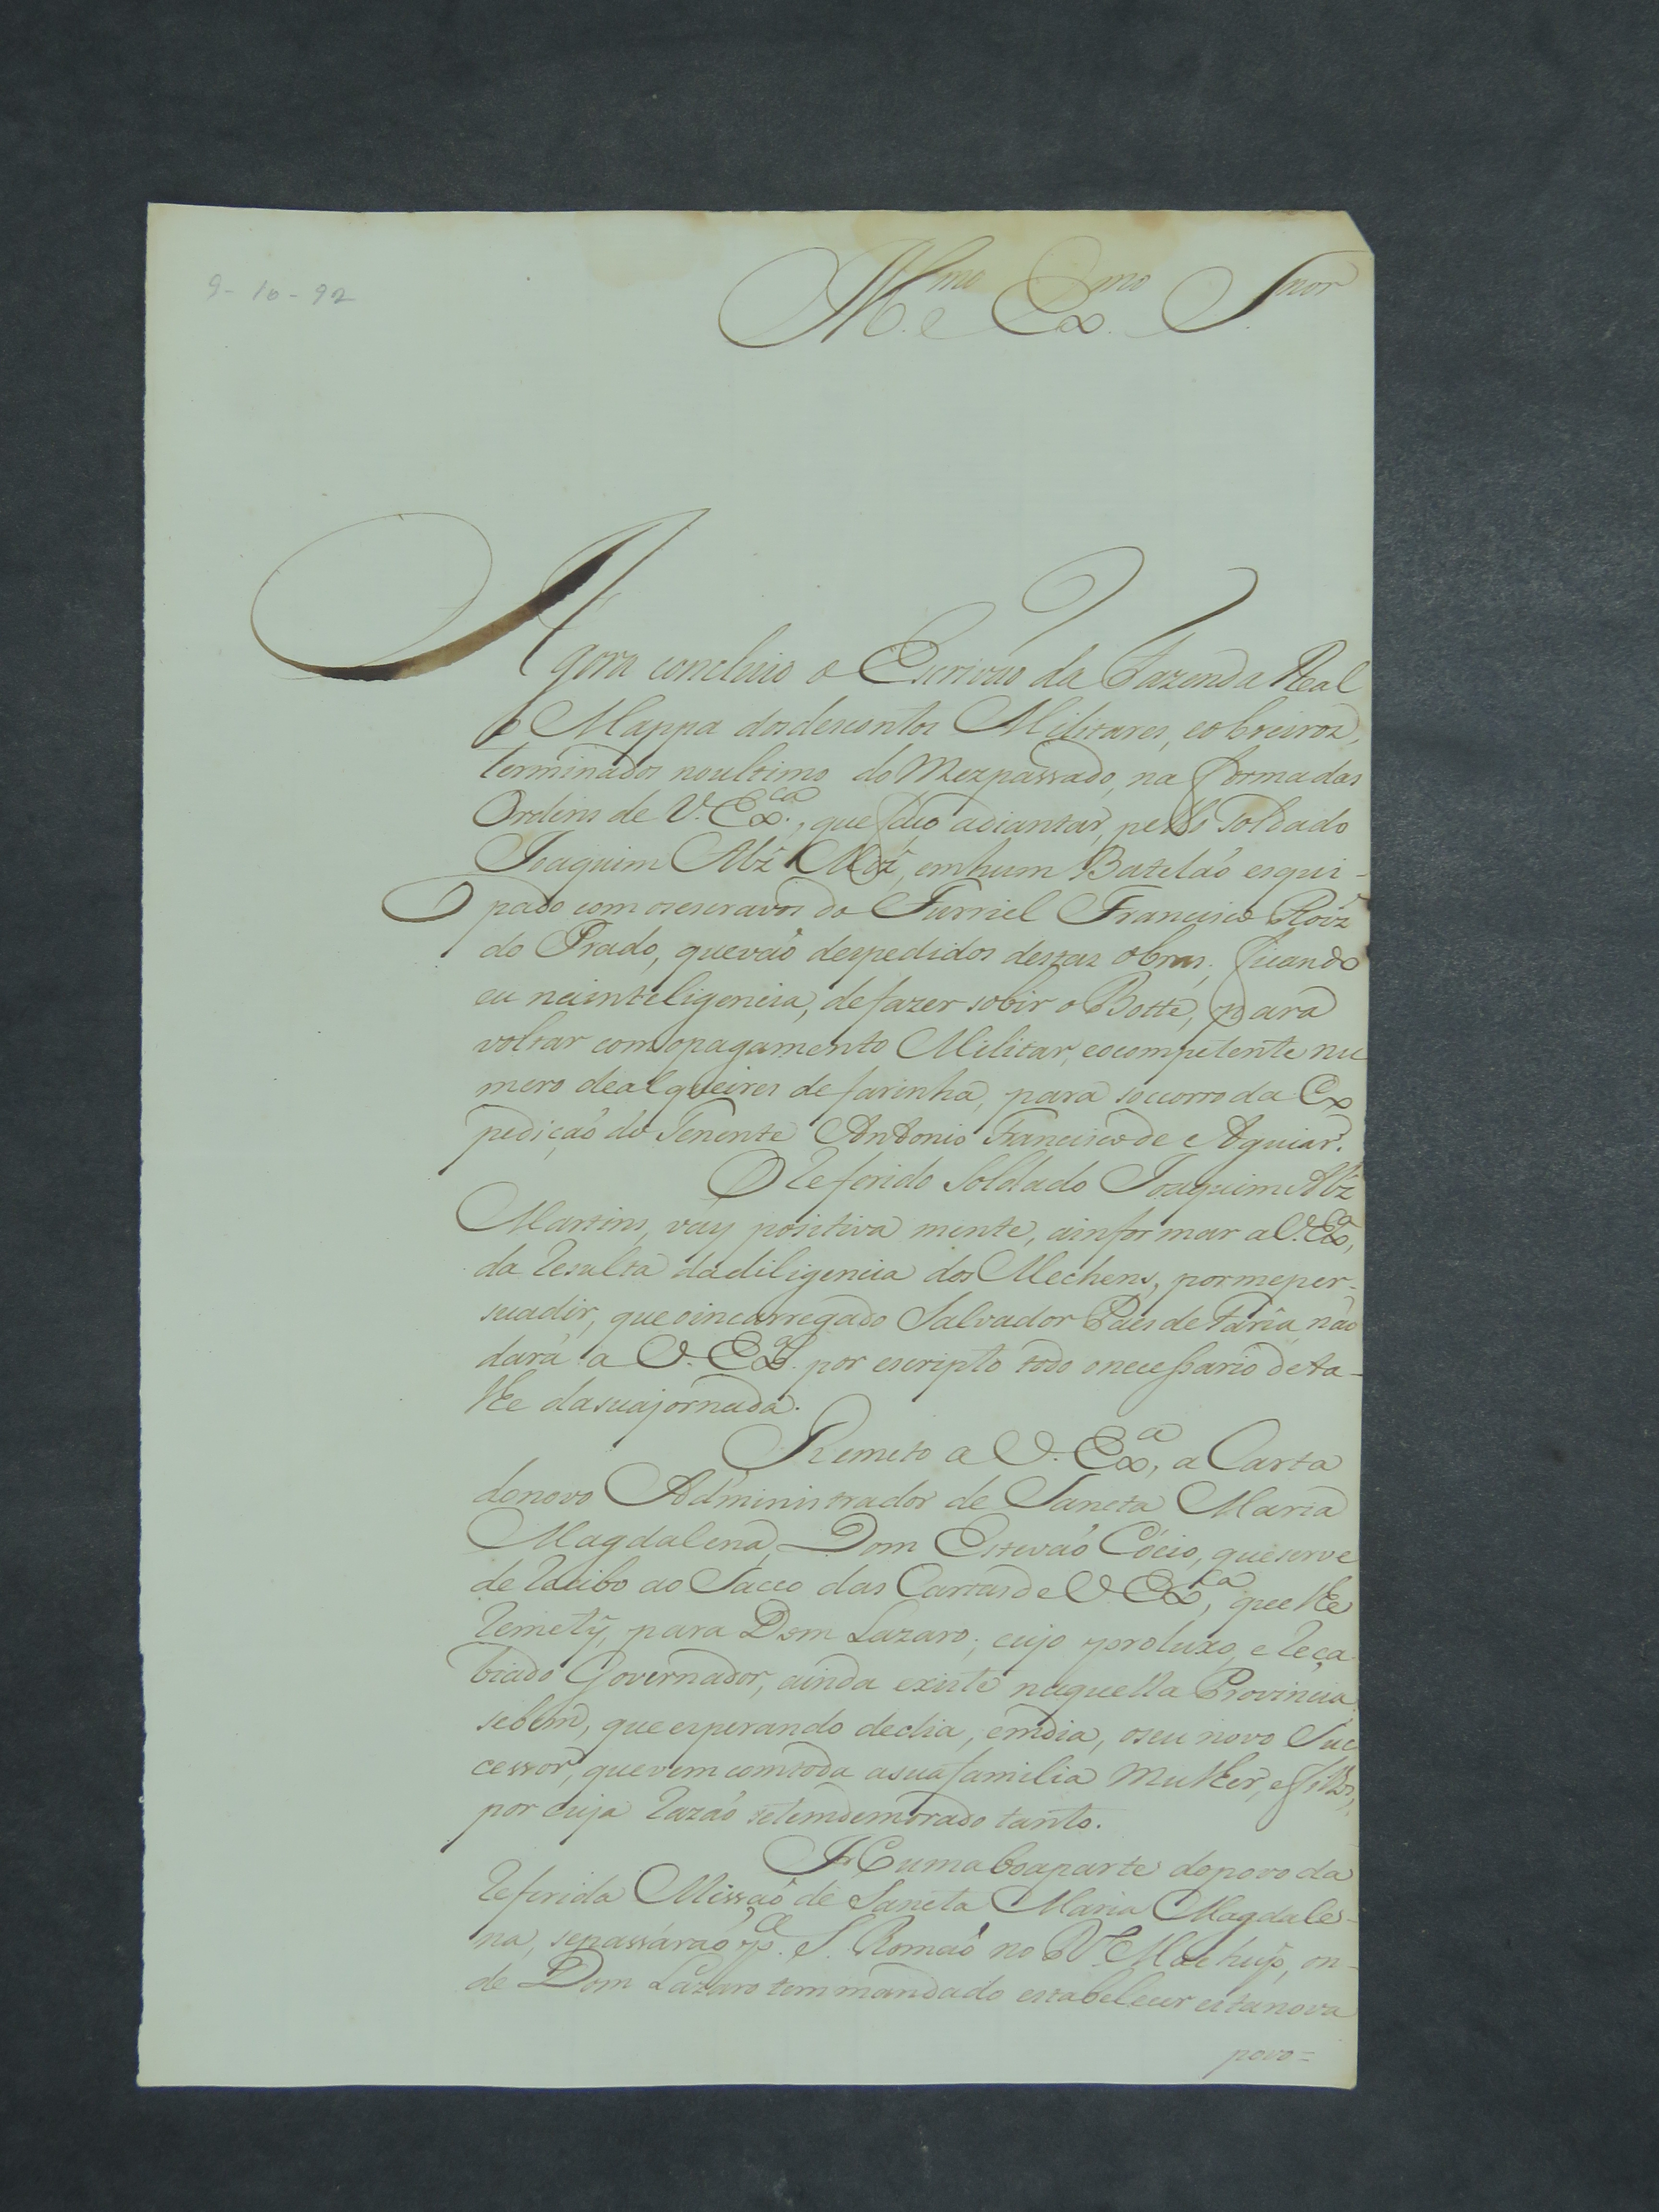 9-10-92
Ill.mo e Ex.mo Snor
Agora concluio o Escrivaõ da Fazenda Real
o Mappa dos descontos Militares, e obreiros,
terminados no ultimo do Mez passado, na forma das
Ordens de V. Ex.ca, que faço adiantar, pello Soldado
Joaquim Alz' Miz', em hum Batelaõ esqui-
pado com os escravos do Furriel Francisco Roiz'
do Prado, que vaõ despedidos destas obras; ficando
eu na inteligencia, de fazer sobir o Botte, para
voltar com o pagamento Militar, e o competente nu
mero de alqueires de farinha, para soccorro da Ex
pediçaõ do Tenente Antonio Francisco de Aguiar.
O referido Soldado Joaquim Alz'
Martins, vay positiva mente, a informar a V. Ex.a,
da resulta da diligencia dos Mechens, por me per-
suadir, que o incarregado Salvador Paes de Faria, naõ
dará a V. Ex.a por escripto todo o necessario deta-
lhe da sua jornada.
Remeto a V. Ex.a, a Carta
do novo Administrador de Sancta Maria
Magdalena, Dom Estevaõ Cócio, que serve
de recibo ao Sacco das Cartas de V. Ex.ca, que lhe
remety, para Dom Lazaro; cujo proluxo, e reca
biado Governador, ainda existe naquella Provincia
se bem, que esperando de dia, em dia, o seu novo Suc
cessor, que vem com toda a sua familia Mulher, e filhos,
por cuja razaõ se tem demorado tanto.
Huma boa parte do povo da
referida Missaõ de Sancta Maria Magdale-
na, se passáraõ p.a S. Romaõ no R.o Machupo, on-
de Dom Lazaro tem mandado estabelecer esta nova
povo=